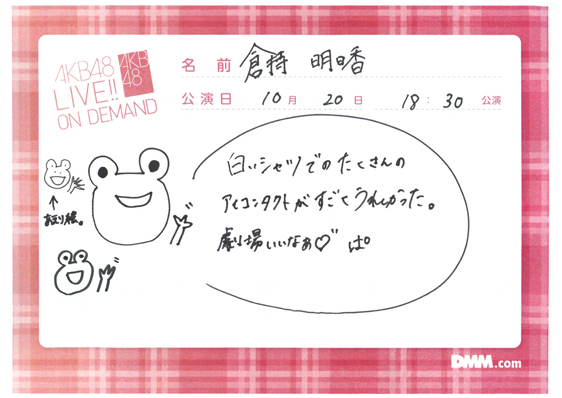 AKB48
LIVE!!
ON DEMAND
AKB
48
名前 倉持 明日香
公演日 10月 20日 18:30 公演
白いシャツでのたくさんの
アイコンタクトがすごくうれしかった。
劇場いいなぁ♡ ぱ
↑
DMM.com